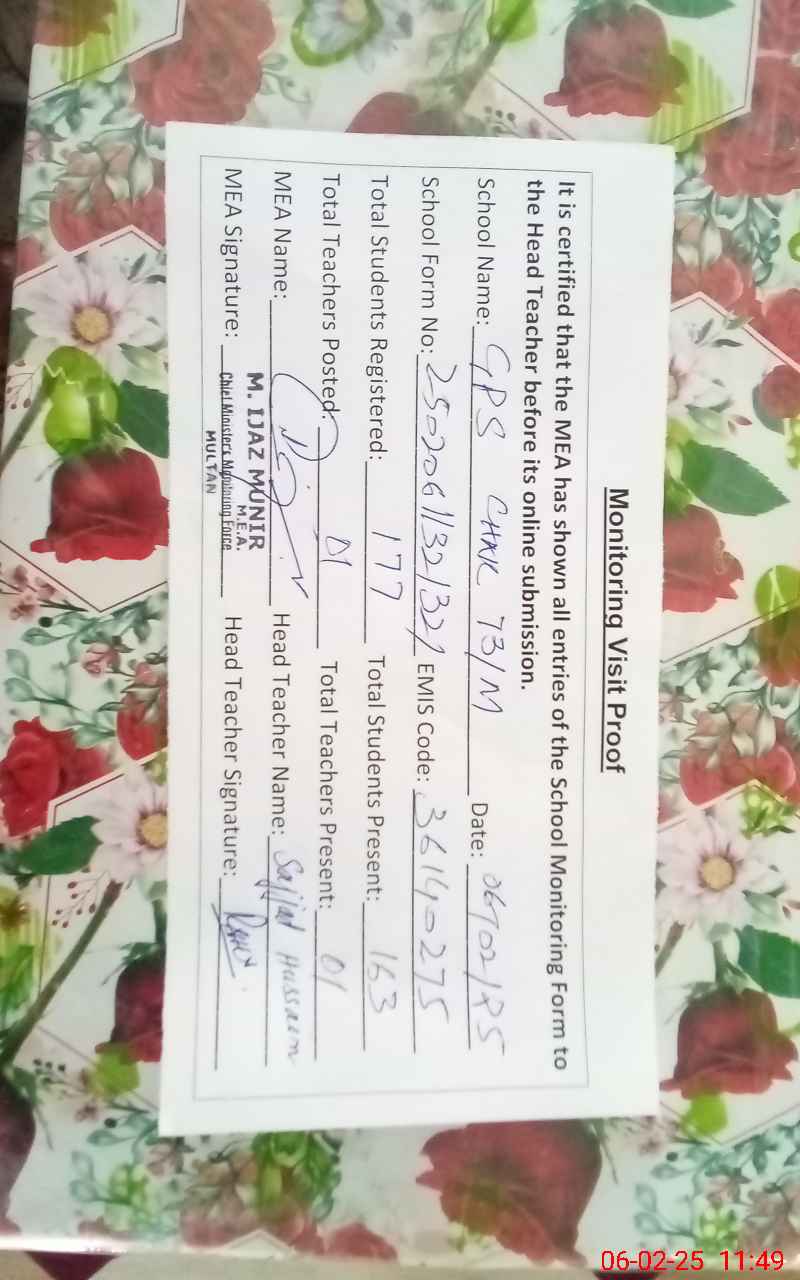 Monitoring Visit Proof
It is certified that the MEA has shown all entries of the School Monitoring Form to
the Head Teacher before its online submission.
School Name: GPS CHAK 73/M Date: 06/02/25
School Form No: EMIS Code: 36140275
Total Students Registered: 177 Total Students Present: 163
Total Teachers Posted: 01 Total Teachers Present: 01
MEA Name: Head Teacher Name: Sajjad Hussain
M. IJAZ MUNIR
M.E.A.
MEA Signature: Chief Minister's Monitoring Force Head Teacher Signature:
MULTAN
06-02-25 11:49